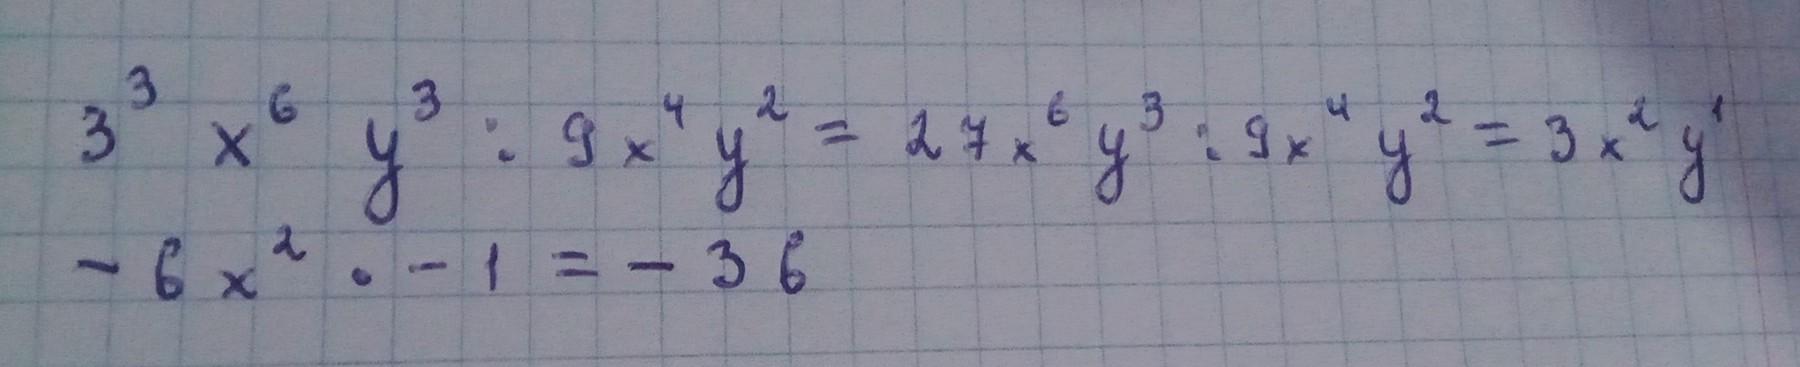 3³ x⁶ y³ : 9x⁴y² = 27x⁶y³ : 9x⁴y² = 3x²y¹
- 6x² · - 1 = - 36